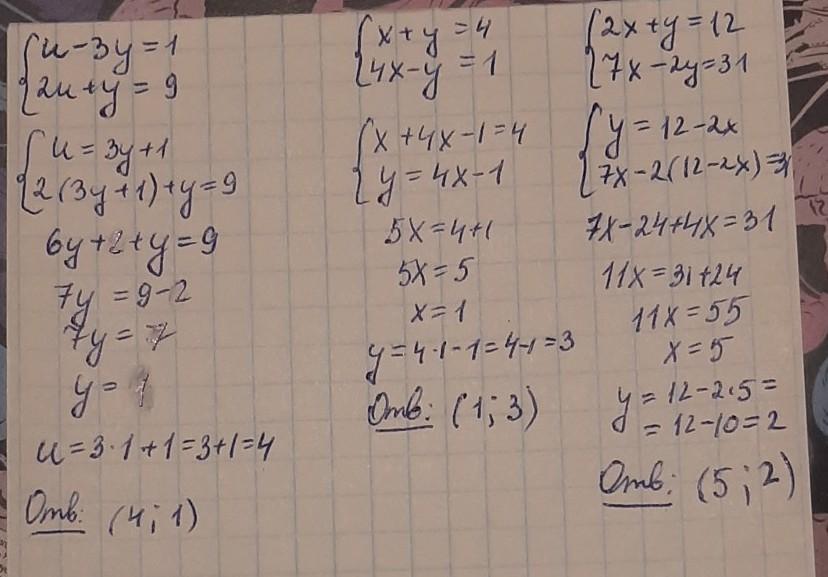 u-3y=1
2u+y=9
u=3y+1
2(3y+1)+y=9
6y+2+y=9
7y=9-2
7y=7
y=1
u=3·1+1=3+1=4
Отв: (4;1)
x+y=4
4x-y=1
x+4x-1=4
y=4x-1
5x=4+1
5x=5
x=1
y=4·1-1=4-1=3
Отв: (1;3)
2x+y=12
7x-2y=31
y=12-2x
7x-2(12-2x)=31
7x-24+4x=31
11x=31+24
11x=55
x=5
y=12-2·5=
=12-10=2
Отв: (5;2)